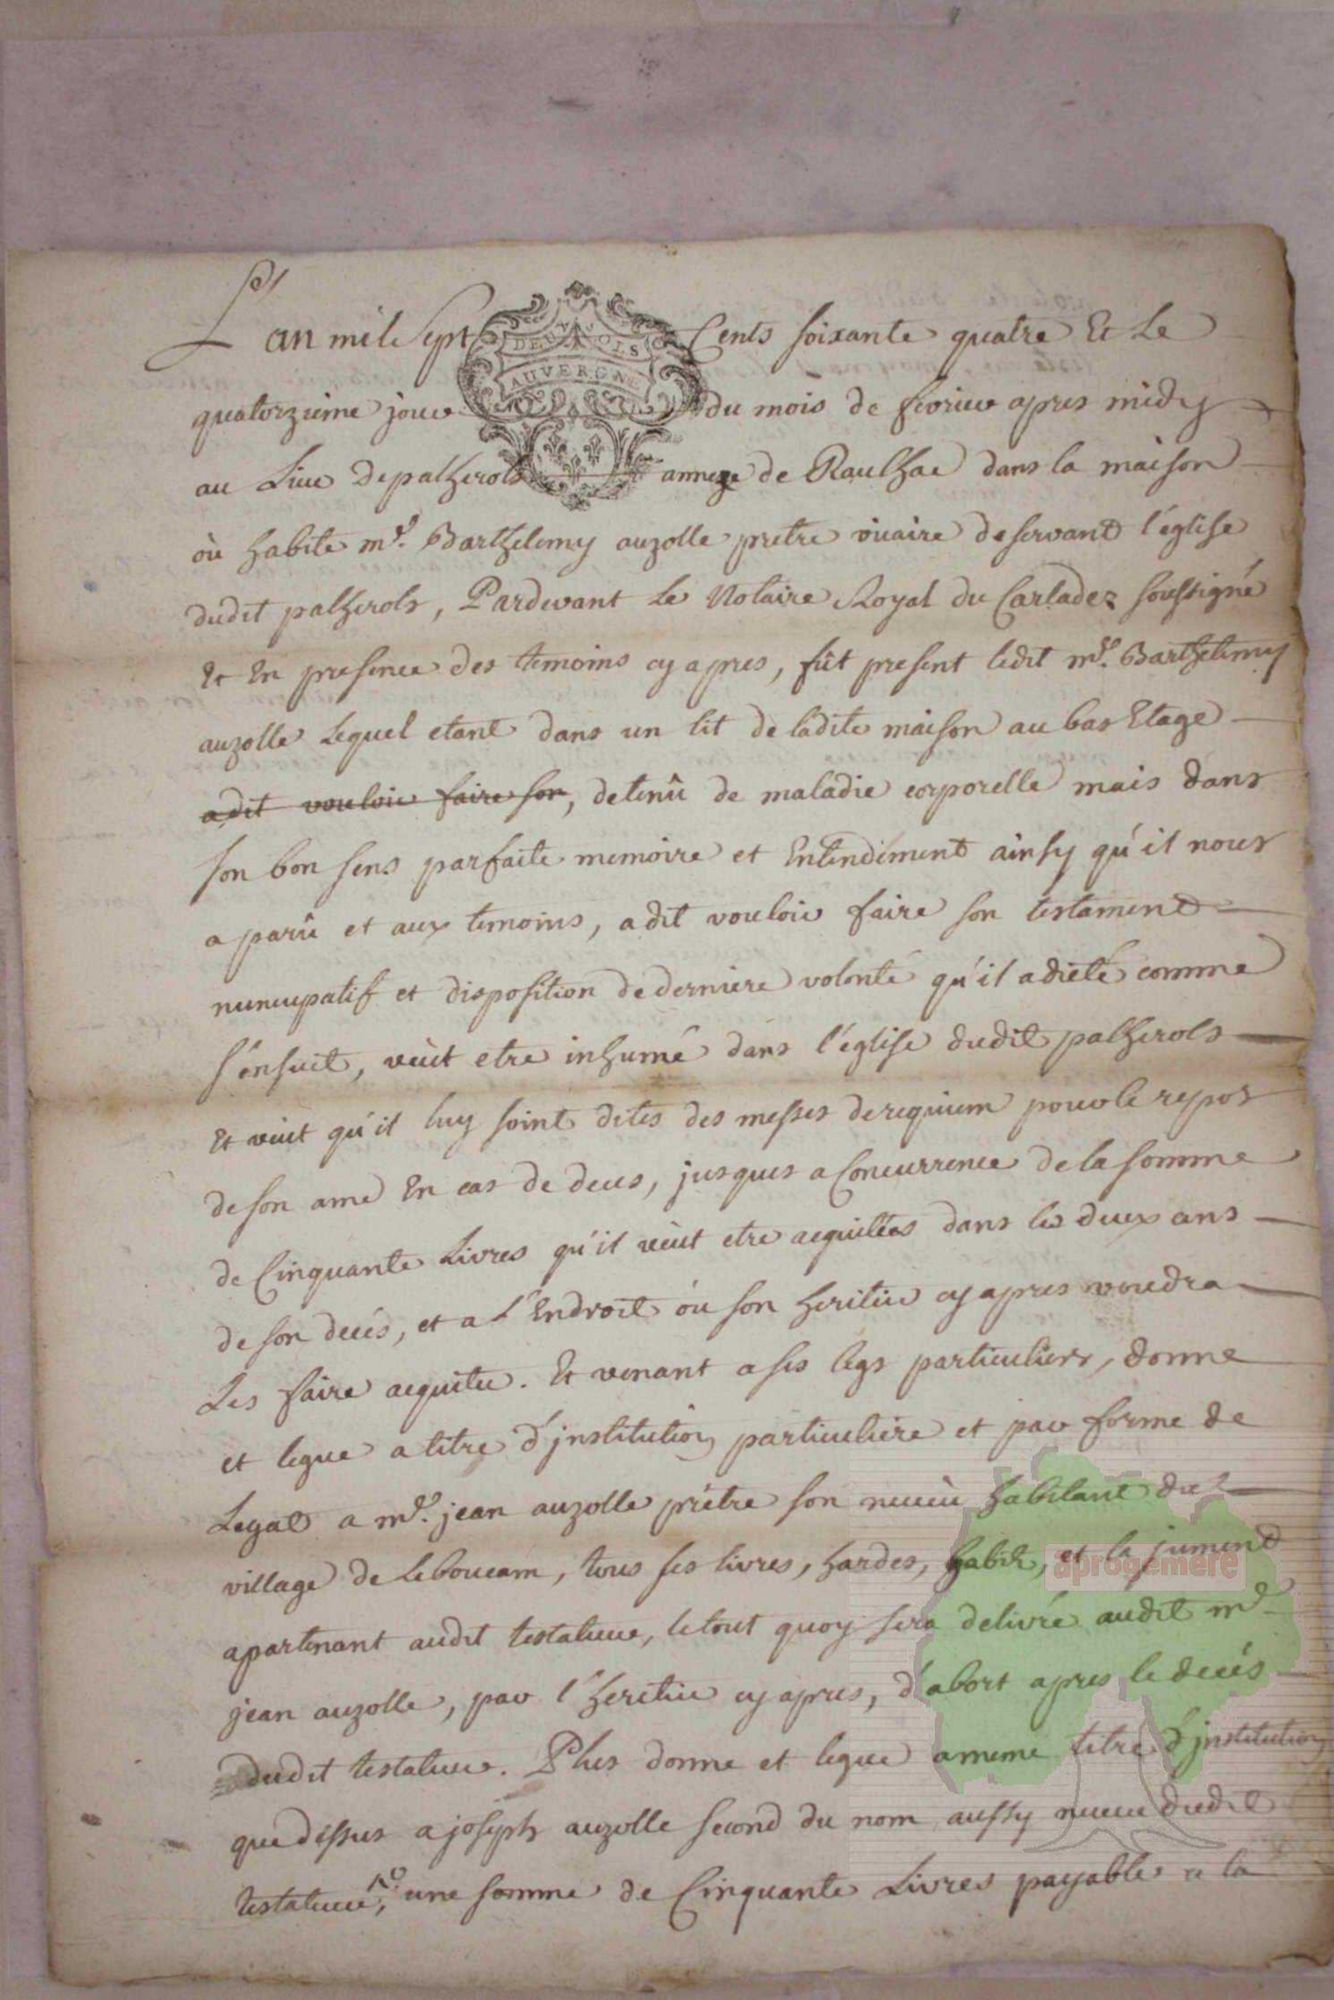 L'an mil Sept Cents soixante quatre Et Le
DEUX SOLS
AUVERGNE
quatorzieme jour du mois de fevrier apres midy
au Lieu de palherols annexe de Raulhac dans la maison
où habite mr. Barthelemy auzolle pretre vicaire deservant l'église
dudit palherols, Pardevant Le Notaire Royal du Carladez soussigné
Et En presence des temoins cy apres, fût present ledit mr. Barthelemy
auzolle Lequel etant dans un lit de ladite maison au bas Etage
a dit vouloir faire son, detenû de maladie corporelle mais dans
son bon sens parfaite memoire et Entendement ainsy qu'il nous
a parû et aux temoins, a dit vouloir faire son testament
nuncupatif et disposition de derniere volonté qu'il a dicté comme
s'ensuit, veùt etre inhumé dans l'église dudit palherols
Et veut qu'il luy soint dites des messes de requiem pour le repos
de son ame En cas de deces, jusques a Concurrence de la somme
de Cinquante Livres qu'il veùt etre acquitées dans les deux ans
de son decés, et a l'Endroit ou son heritier cy apres voudra
Les faire acquiter. Et venant a ses legs particuliers, donne
et legue a titre d'jnstitution particuliere et par forme de
Legat a mr. jean auzolle prétre son neveu habitant du
village de Leboucam, tous ses livres, hardes, habits, et la jument
apartenant audit testateur, le tout quoy sera delivré audit mr
jean auzolle, par l'heritier cy apres, d'abort apres le decés
dudit testateur. Plus donne et legue a meme titre d'jnstitution
que dessus a joseph auzolle second du nom aussy neveu dudit
testateur, une somme de Cinquante Livres payable a la
aprogemere